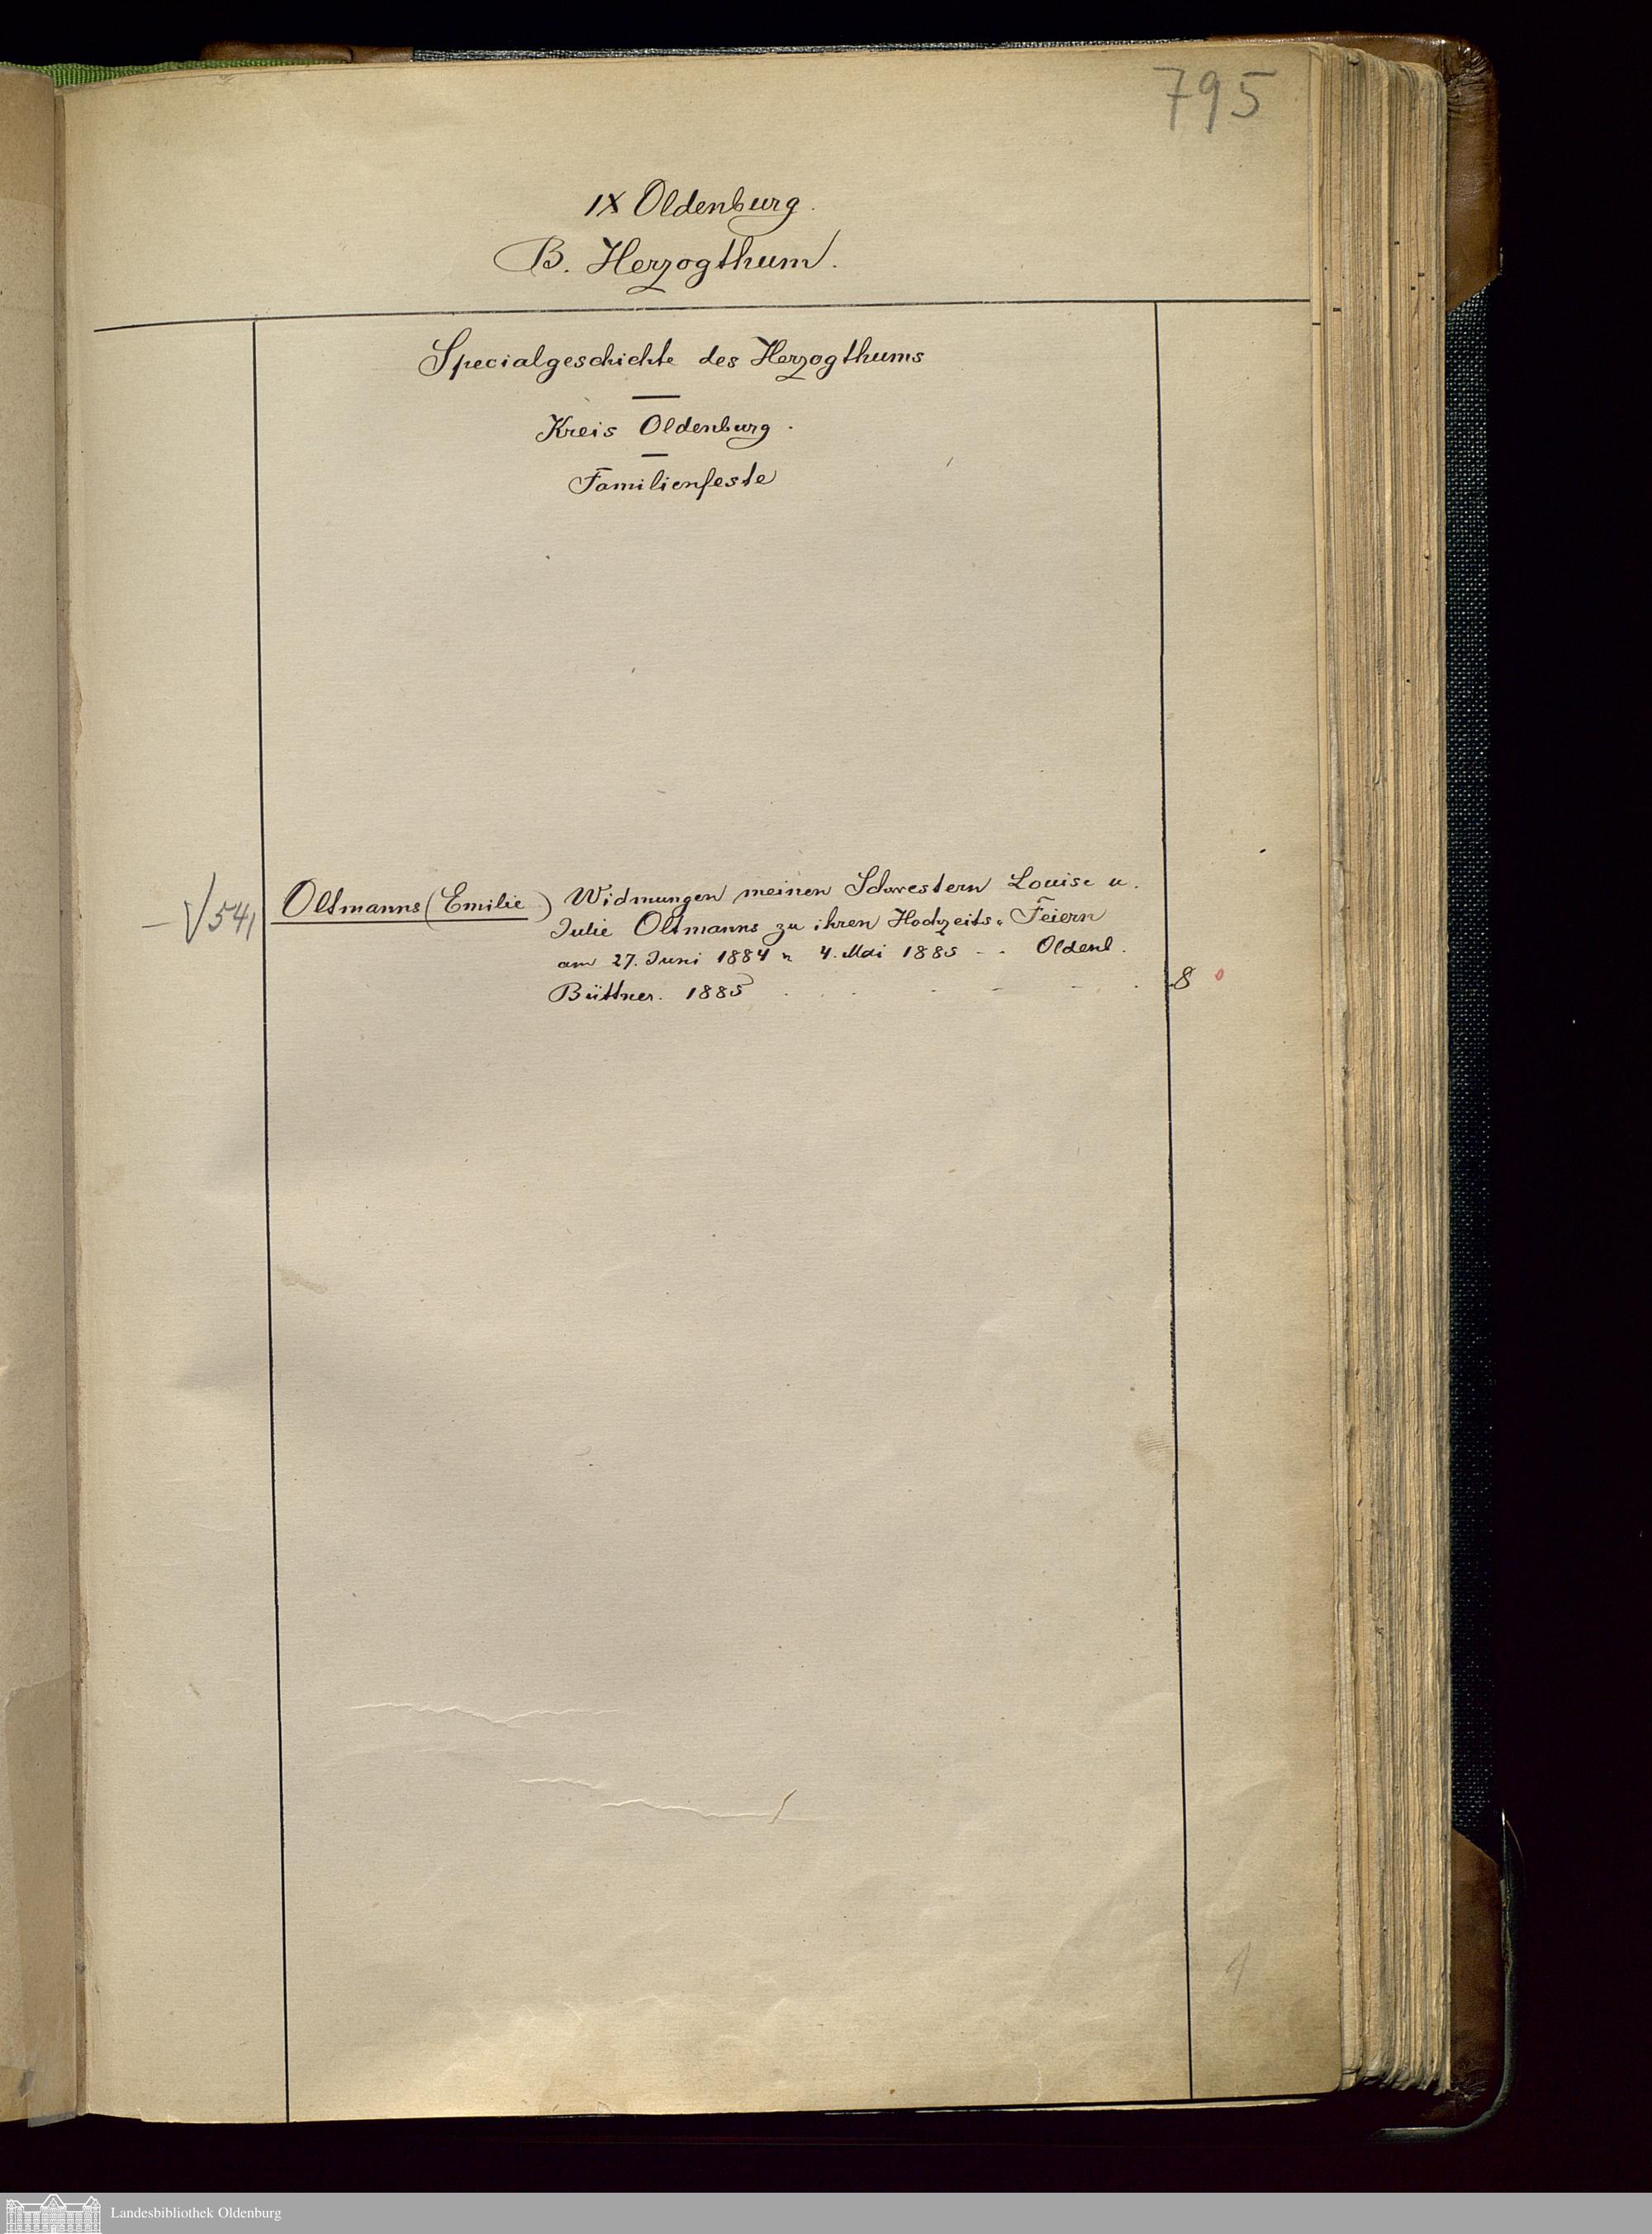 795
IX Oldenburg.
B. Herzogthum.
Specialgeschichte des Herzogthums
Kreis Oldenburg.
Familienfeste
— √ 541 Oltmanns (Emilie) Widmungen meinen Schwestern Louise u.
Julie Oltmanns zu ihren Hochzeits-Feiern
am 27. Juni 1884 u 4. Mai 1885 - . Oldenb.
Büttner. 1885 . . . . . . 8 0
1
Landesbibliothek Oldenburg